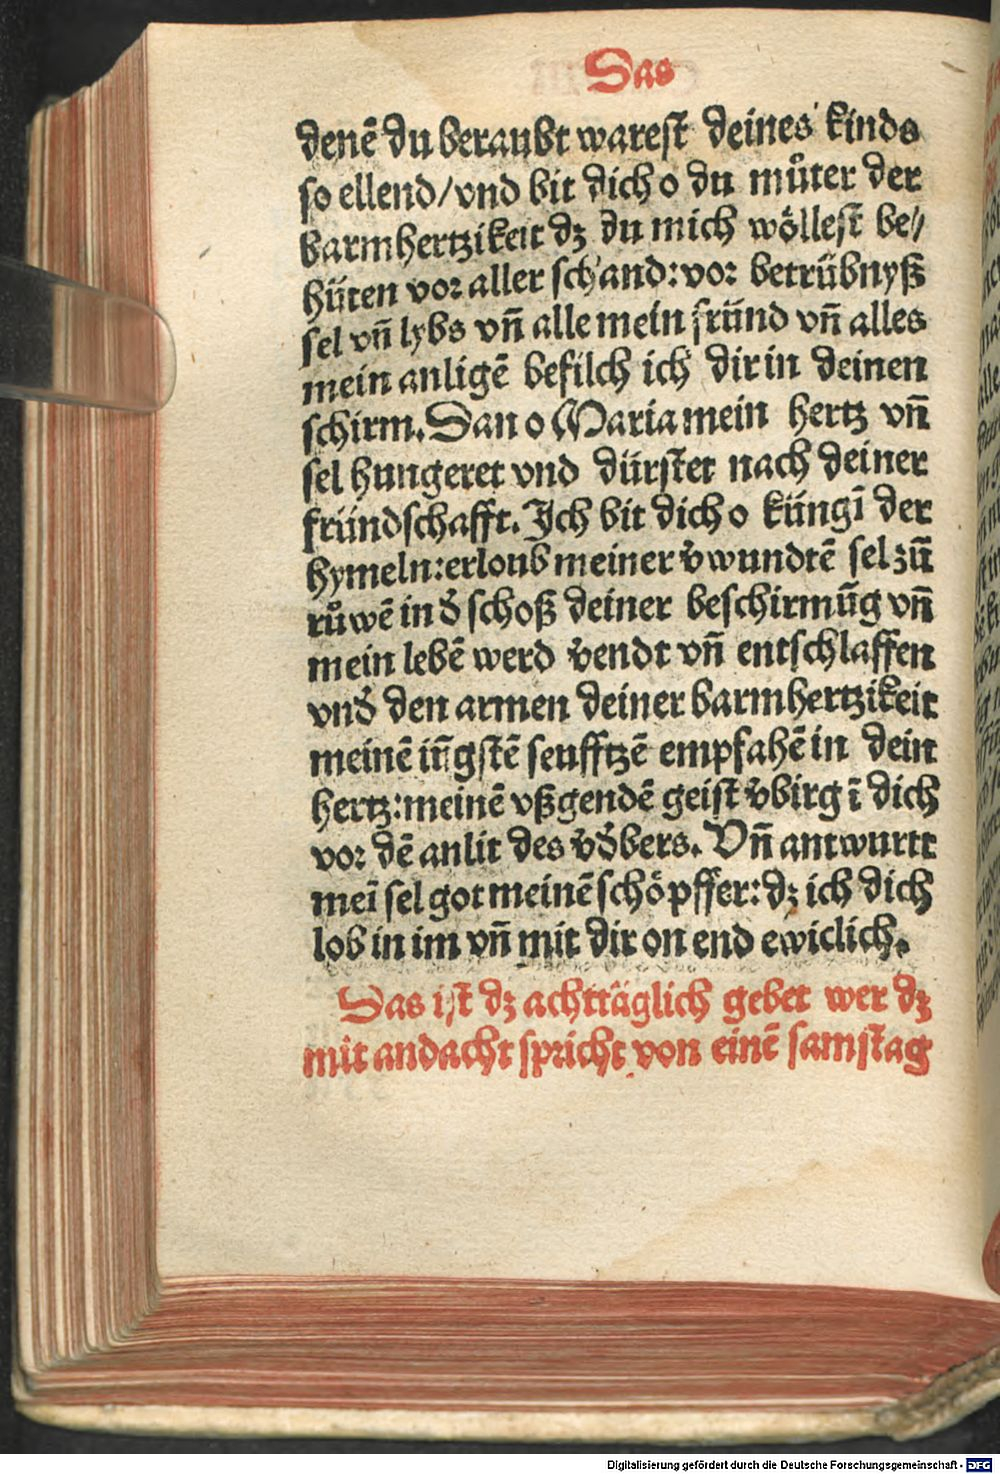 Das
denē du beraubt warest deines kinds
so ellend/vnd bit dich o du můter der
barmhertzikeit dz du mich wöllest be//
hüten vor aller schand: vor betrübnyß
sel vn̄ lybs vn̄ alle mein fründ vn̄ alles
mein anligē befilch ich dir in deinen
schirm. Dan o Maria mein hertz vn̄
sel hungeret vnd dürstet nach deiner
fründschafft. Ich bit dich o küngī der
hymeln: erloub meiner v̄wundtē sel zū
růwē in d̄ schoß deiner beschirmūg vn̄
mein lebē werd v̄endt vn̄ entschlaffen
vnd̄ den armen deiner barmhertzikeit
meinē in̄gstē seufftzē empfahē in dein
hertz: meinē vßgendē geist v̄birg ī dich
vor dē anlit des v̄d̄bers. Vn̄ antwurtt
meī sel got meinē schöpffer: dz ich dich
lob in im vn̄ mit dir on end ewiclich.
Das ist dz achttäglich gebet wer dz
mit andacht spricht von einē samstag
Digitalisierung gefördert durch die Deutsche Forschungsgemeinschaft - DFG